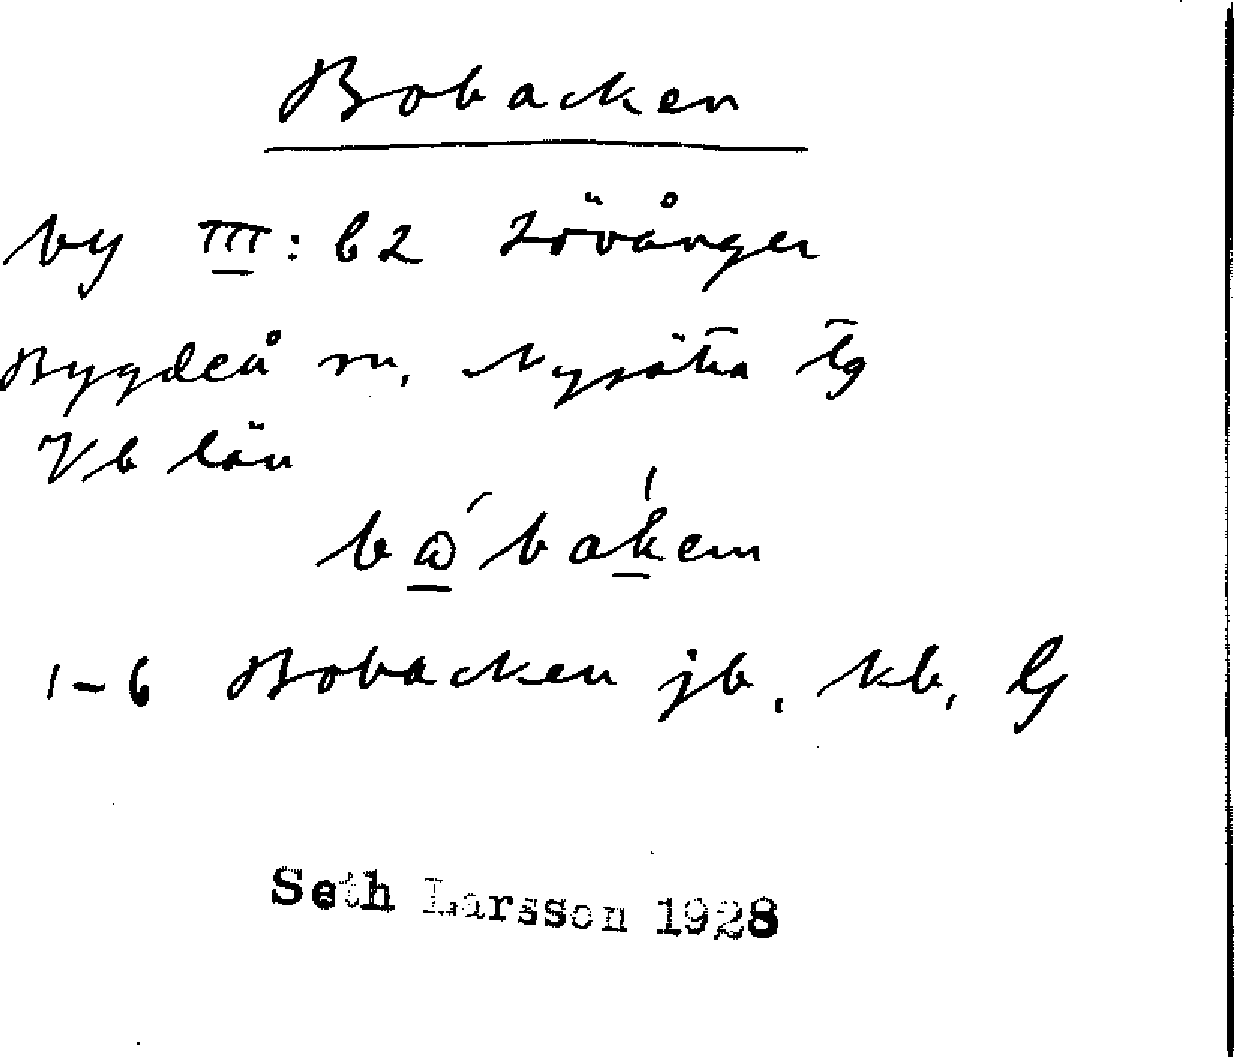 Bobacken
by III: b2 Lövånger
Bygdeå sn, Nysätra tg
Vb län
bakem
1-6 Bobacken jb, kb, G
Seth Larsson 1928